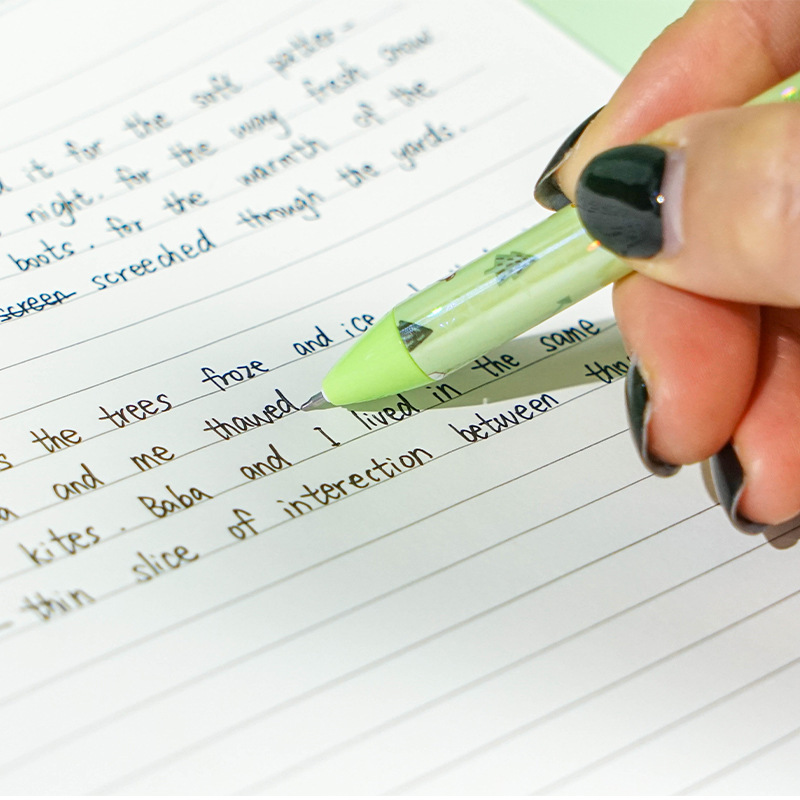 it for the soft patter-
night. for the way fresh snow
boots. for the warmth of the
screen screeched through the yards.
s the trees froze and ice
and me thawed
Baba and I lived in the same
kites.
slice of interection between
thin